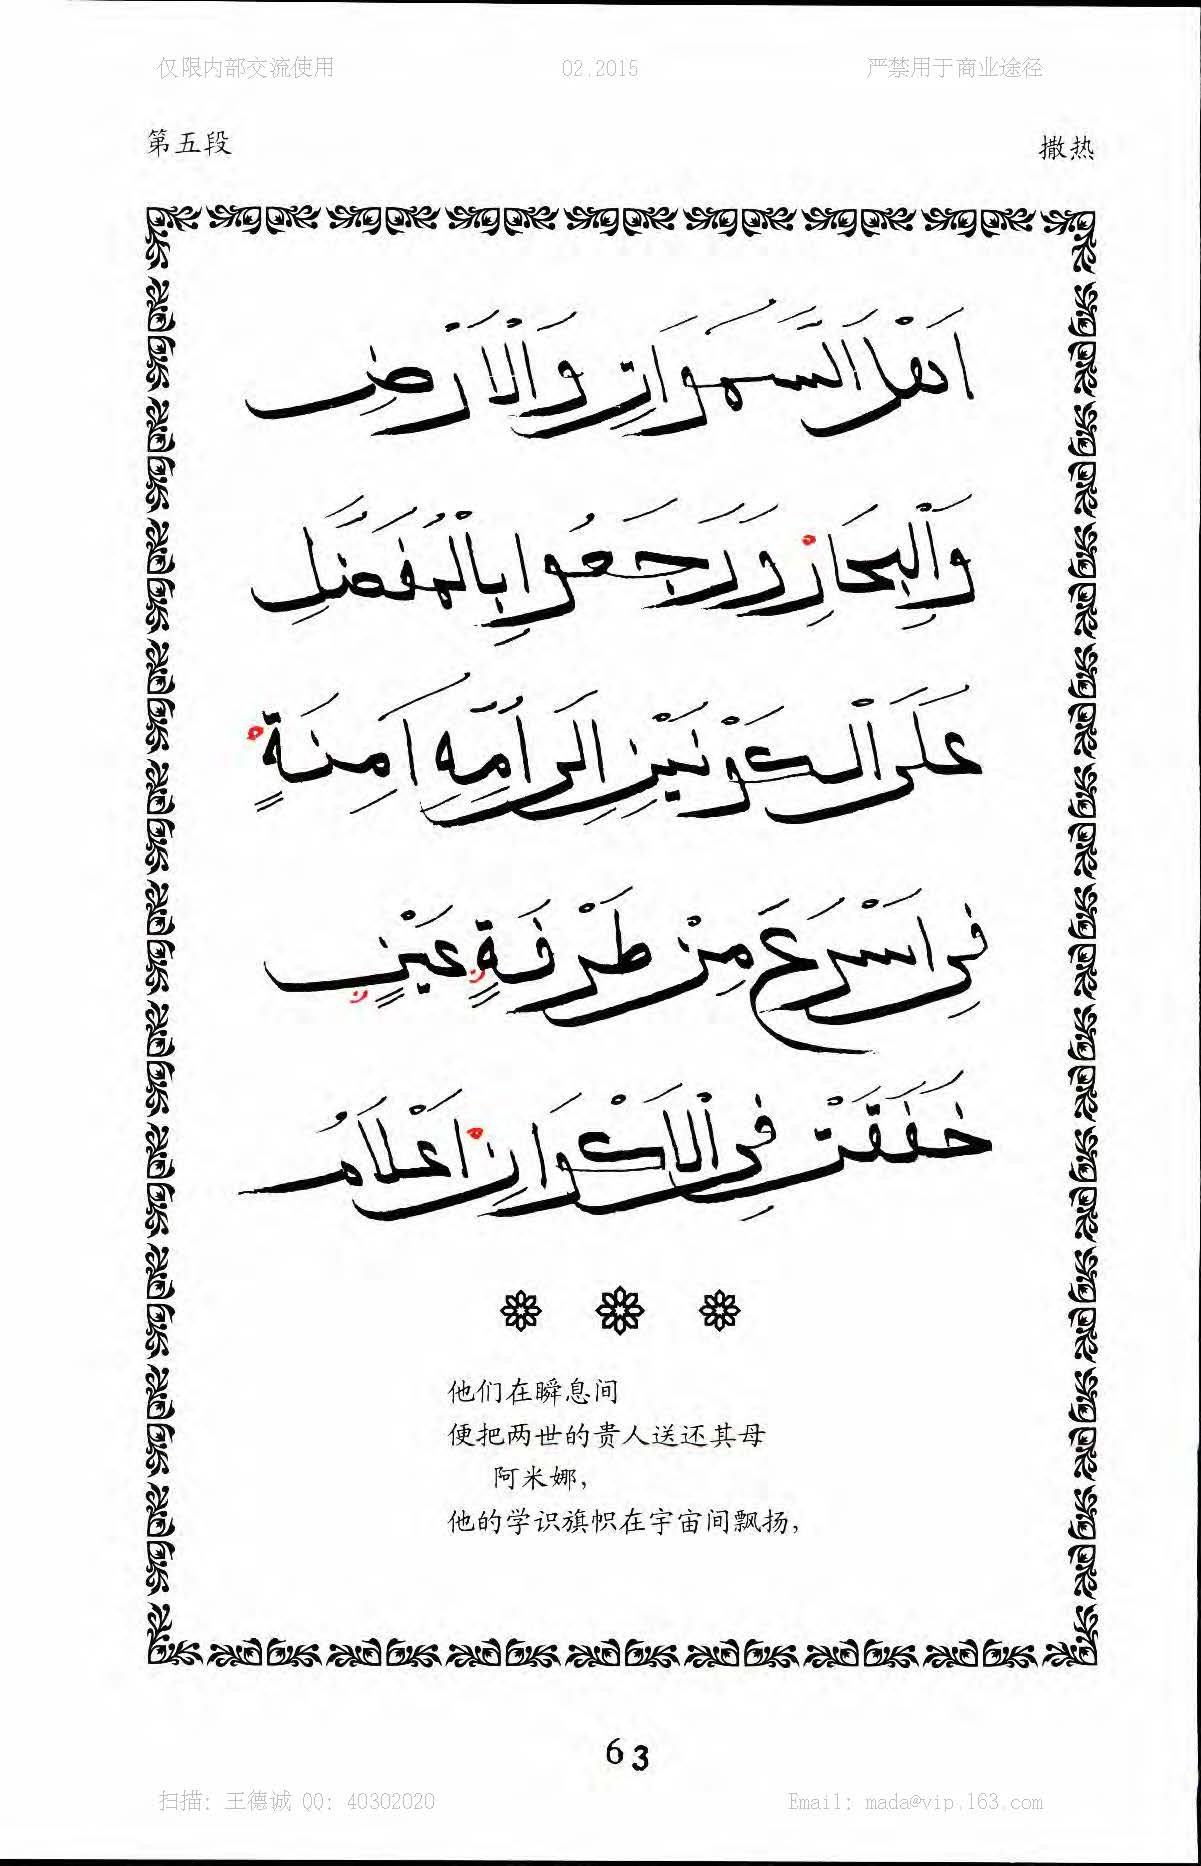 仅限内部交流使用 02.2015 严禁用于商业途径
第五段 撒热
اَهْلَ السَّمٰوَاتِ وَالْاَرْضِ
وَالْبِحَارِ وَرَجَعُوا بِالْمُفَضَّلِ
عَلَى الْكَوْنَيْنِ اِلَى اُمِّهِ اٰمِنَةٍ
فِى اَسْرَعَ مِنْ طَرْفَةٍ عَيْنٍ
خَفَقَتْ فِى الْاَكْوَانِ اَعْلَامُ
他们在瞬息间
便把两世的贵人送还其母
阿米娜，
他的学识旗帜在宇宙间飘扬，
63
扫描：王德诚 QQ：40302020 Email：mada@vip.163.com